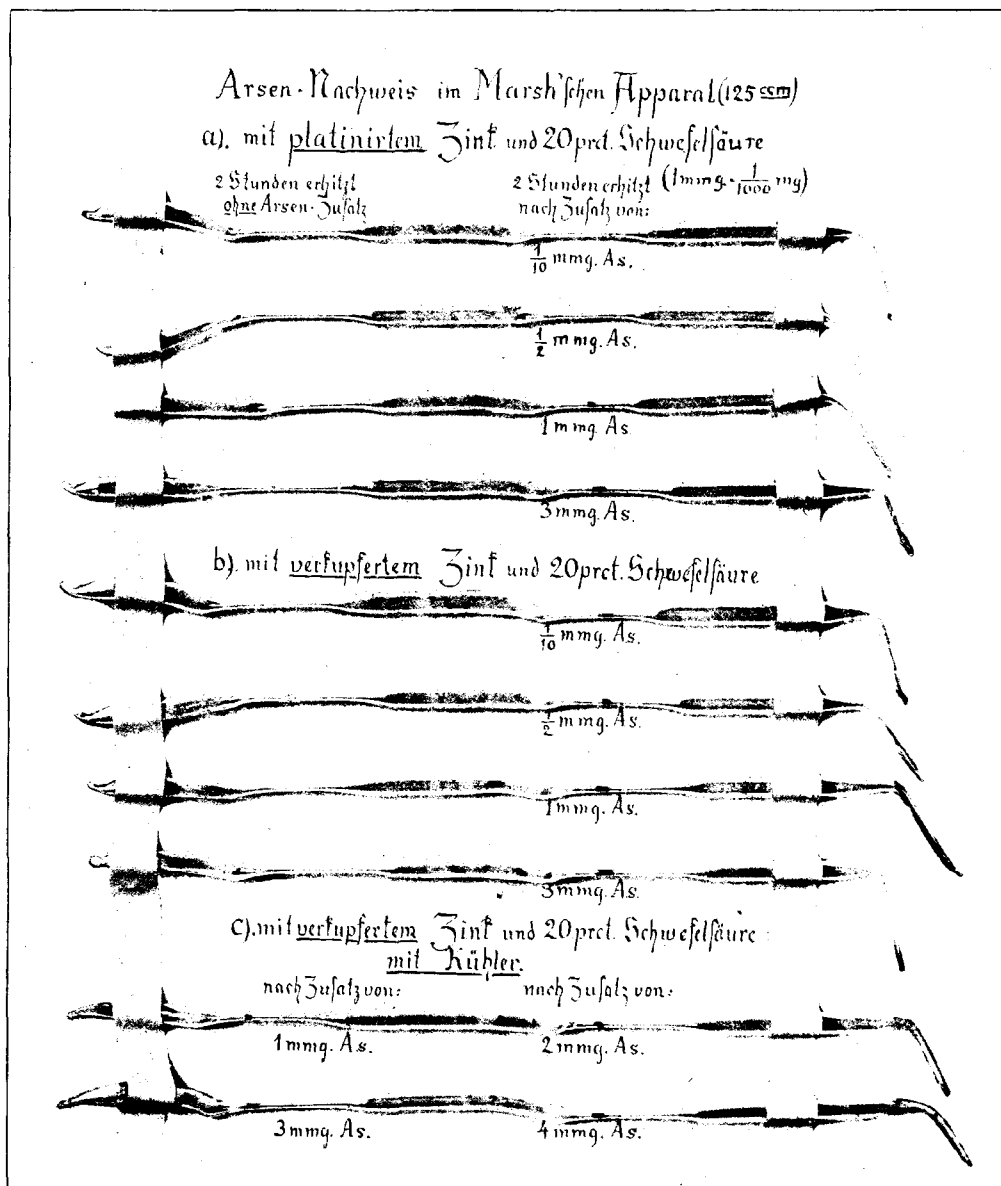 Arsen-Nachweis im Marsh'schen Apparat (125 ccm)
a). mit platinirtem Zink und 20 prct. Schwefelsäure
2 Stunden erhitzt
ohne Arsen-Zusatz
2 Stunden erhitzt (1 mmg. - 1/1000 mg)
nach Zusatz von:
1/10 mmg. As.
1/2 mmg. As.
1 mmg. As
3 mmg. As.
b). mit verkupfertem Zink und 20 prct. Schwefelsäure
1/10 mmg. As.
1/2 mmg. As.
1 mmg. As.
3 mmg. As.
c). mit verkupfertem Zink und 20 prct. Schwefelsäure
mit Kühler.
nach Zusatz von: nach Zusatz von:
1 mmg. As. 2 mmg. As.
3 mmg. As. 4 mmg. As.